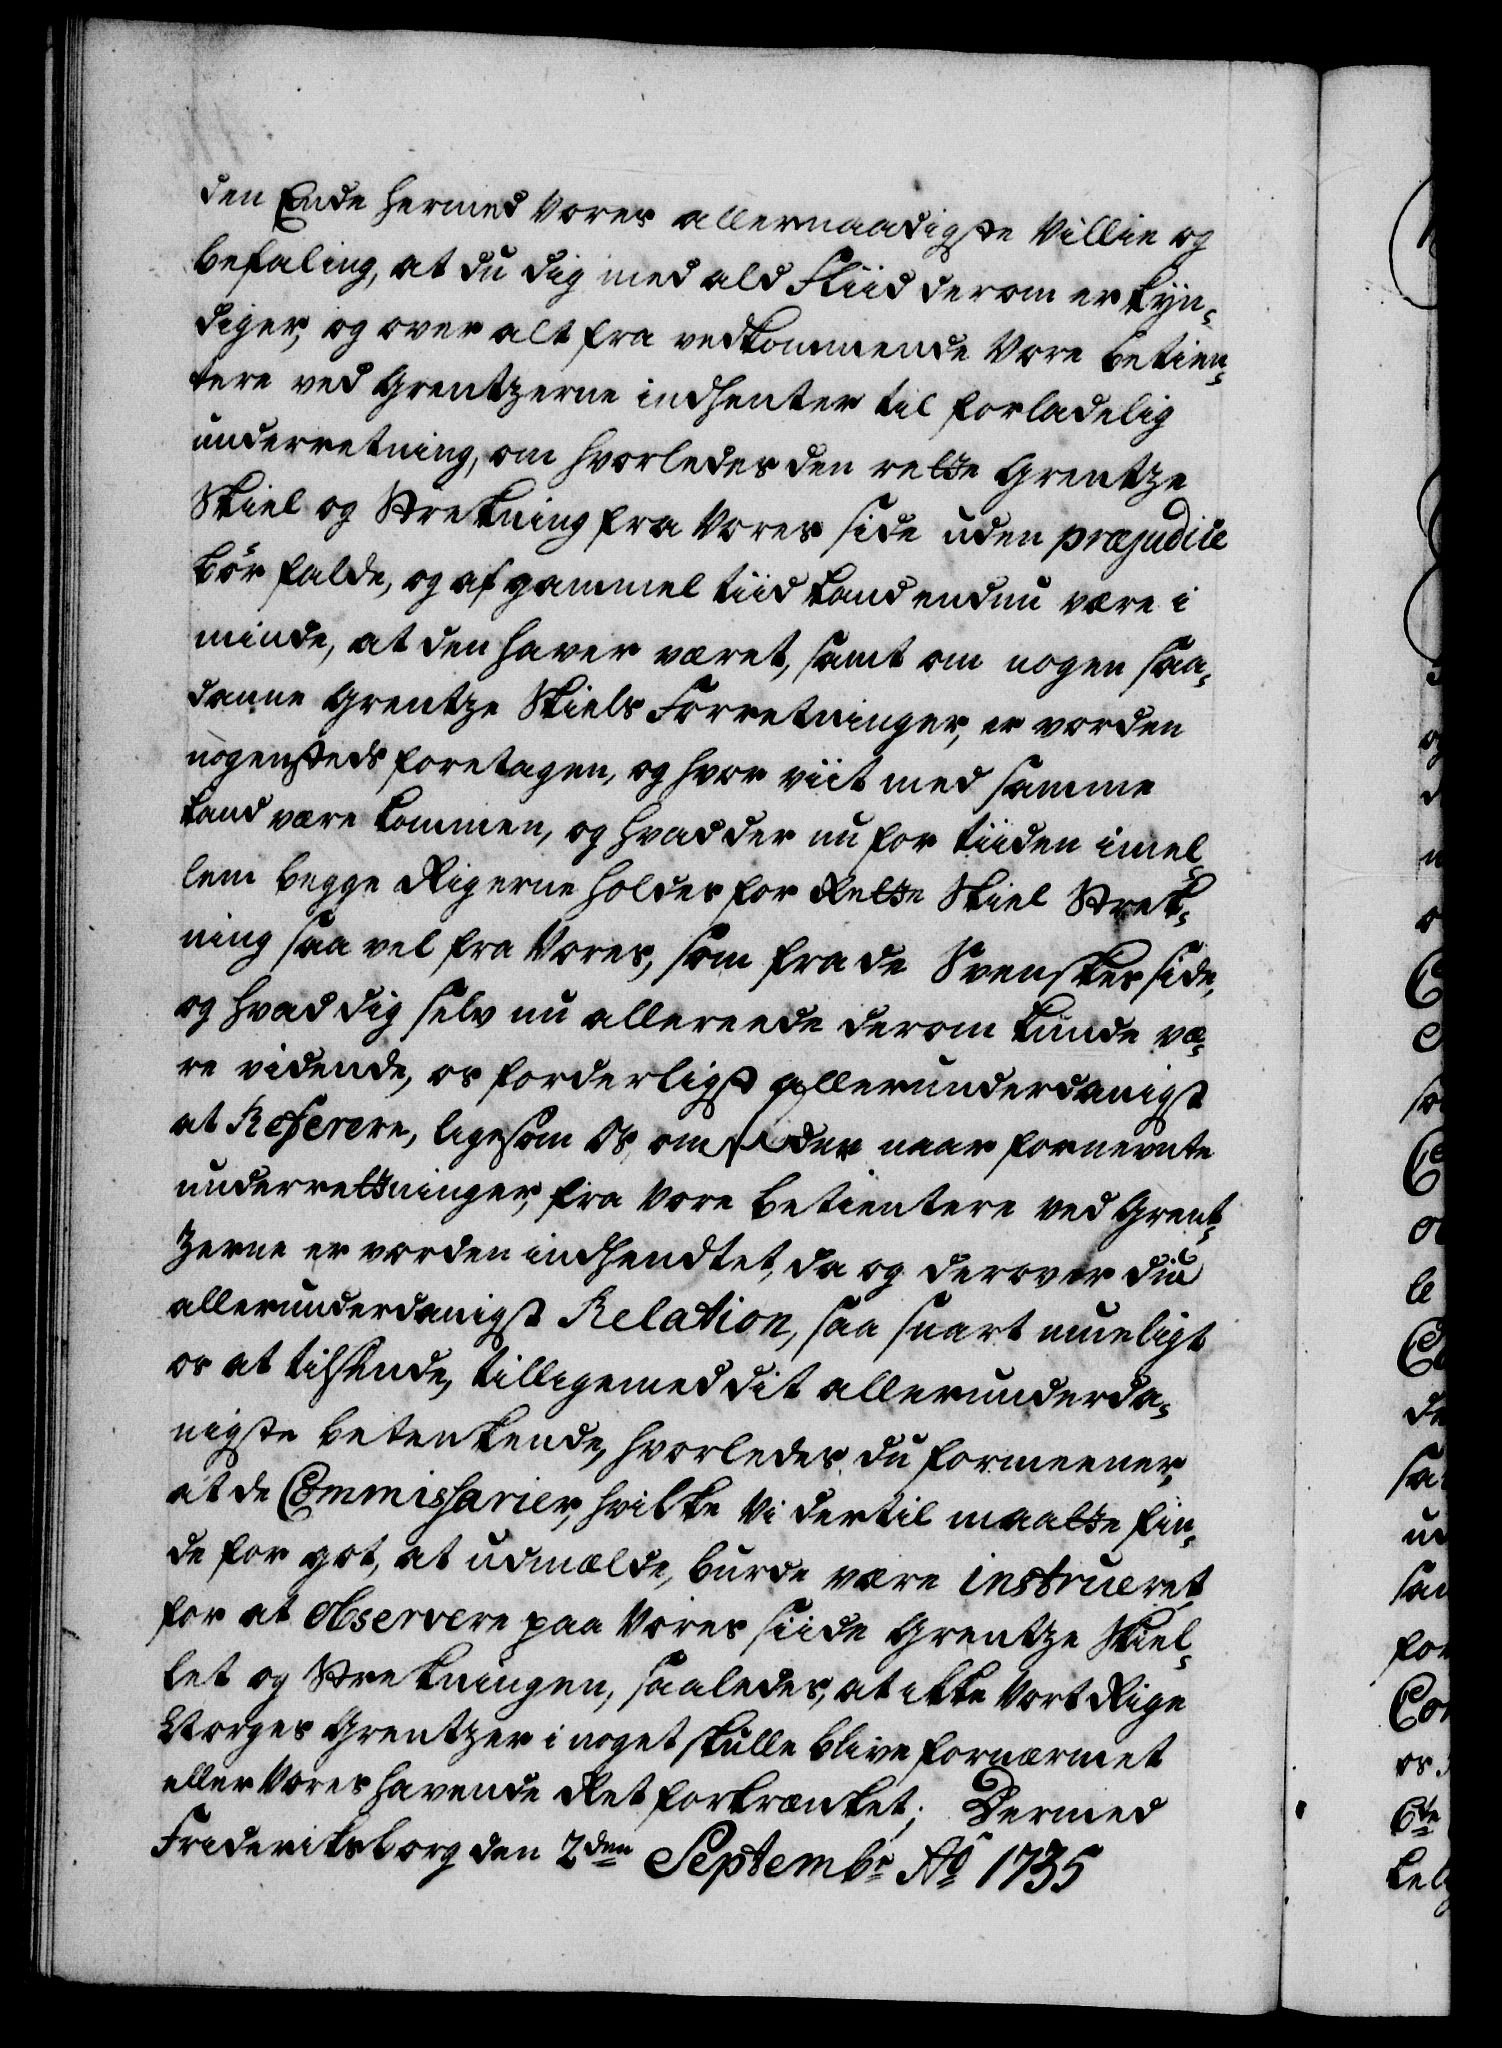 den Ende hermed Vores allernaadigste Villie og
befaling, at du dig med ald Fliid derom er kyn-
diger, og over alt fra vedkommende Vore betien-
tere ved Grentzerne indhenter til forladelig
underretning, om hvorledes den rette Grentze
Skiel og Strekning fra Vores side uden præjudice
bør falde, og af gammel tiid kand endnu være i
minde, at den haver været, samt om nogen saa-
danne Grentze Skiels Forretninger, er vorden
nogensteds foretagen, og hvor viit med samme
kand være kommen, og hvad der nu for tiiden imel-
lem begge Rigerne holdes for Rette Skiel Strek-
ning saa vel fra Vores, som fra de Svenskes side,
og hvad dig selv nu allereede derom kunde væ-
re vidende, os forderligst allerunderdanigst
at Referere, ligesom Os om der naar fornevnte
underretninger, fra Vore betientere ved Grent-
zerne er vorden indhendtet, da og derover din
allerunderdanigst Relation, saa snart mueligt
os at tilsende, tilligemed dit allerunderda-
nigste betenkende, hvorledes du formeener,
at de Commissarier, hvilke Vi dertil maatte fin-
de for got, at udmælde, burde være instrueret
for at observere paa Vores siide Grentze Skiel-
let og Strekningen, saaledes, at ikke Vort Rige
Norges Grentzer i noget skulle blive fornærmet
eller Vores havende Ret forkrænket; Dermed
Frideriksborg den 2den Septembr Ao 1735